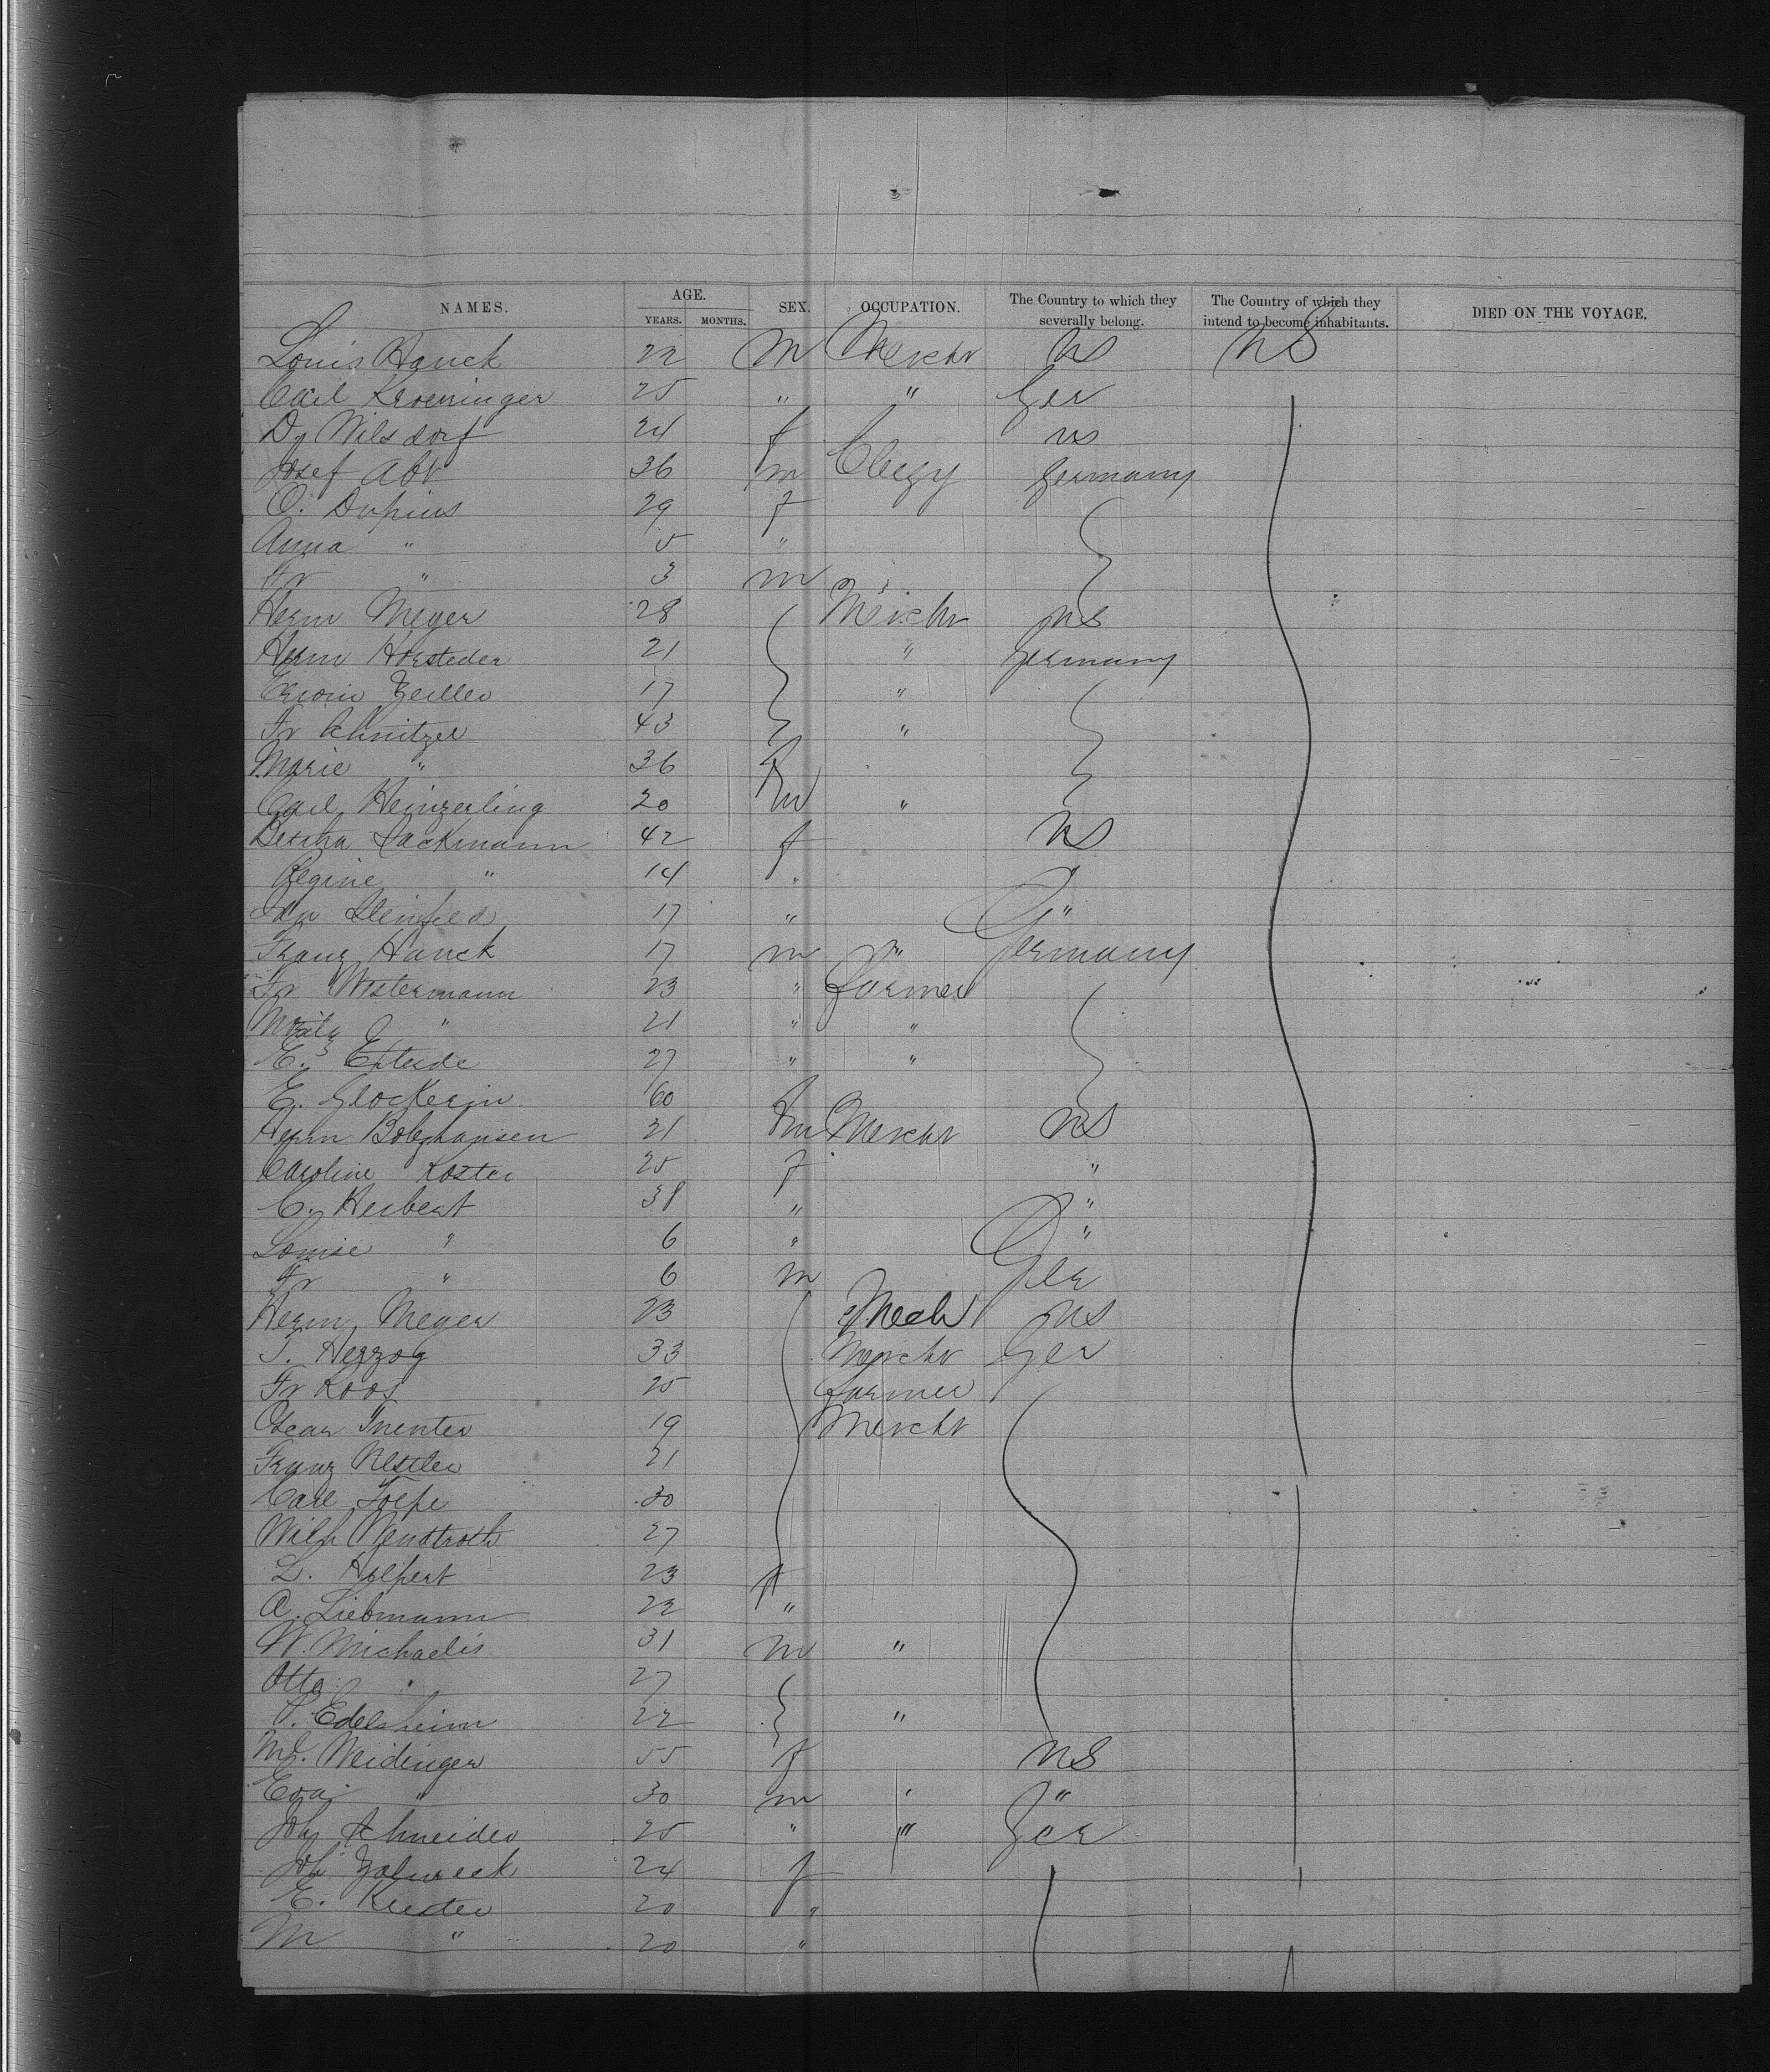 NAMES. AGE. YEARS. MONTHS. SEX. OCCUPATION. The Country to which they severally belong. The Country of which they intend to become inhabitants. DIED ON THE VOYAGE.
Louis Hauck 22 M Mercht US US
Carl Kroeninger 25 " " Ger
Dy Wilsdorf 24 f US
Josef Abt 36 m Clergy Germany
O. Dupius 29 f
Anna " 5 "
Fr " 3 m
Herm Meyer 28 Mercht US
Herm Horsteder 21 " Germany
Erwin Zeller 17 "
Fr Schnitzer 43 "
Marie " 36 f
Carl Heinzerling 20 m "
Bertha Lackmann 42 f US
Regine " 14 "
Ida 17 " "
Franz Hauck 17 m " Germany
Fr Westermann 23 " Farmer
" 21 " "
E. 27 " "
E. Glockerin 60 f
Herm 21 m Mercht US
Caroline Koster 25 f "
C. Herbert 38 " "
Louise " 6 " "
Fr " 6 m Ger
Herm Meyer 23 Mech US
J. Herzog 33 Mercht Ger
Fr Koos 25 Farmer
Oscar 19 Mercht
Franz Nestler 21
Carl 30
Wilh 27
L. Halpert 23 f
A. Liebmann 22 "
W. Michaelis 31 m "
Otto " 27
S. Edelsheim 22 "
Weidinger 55 f US
Eva " 30 m " "
Joh Schneider 25 " " Ger
Joh 24 f
E. 20 "
M " 20 "